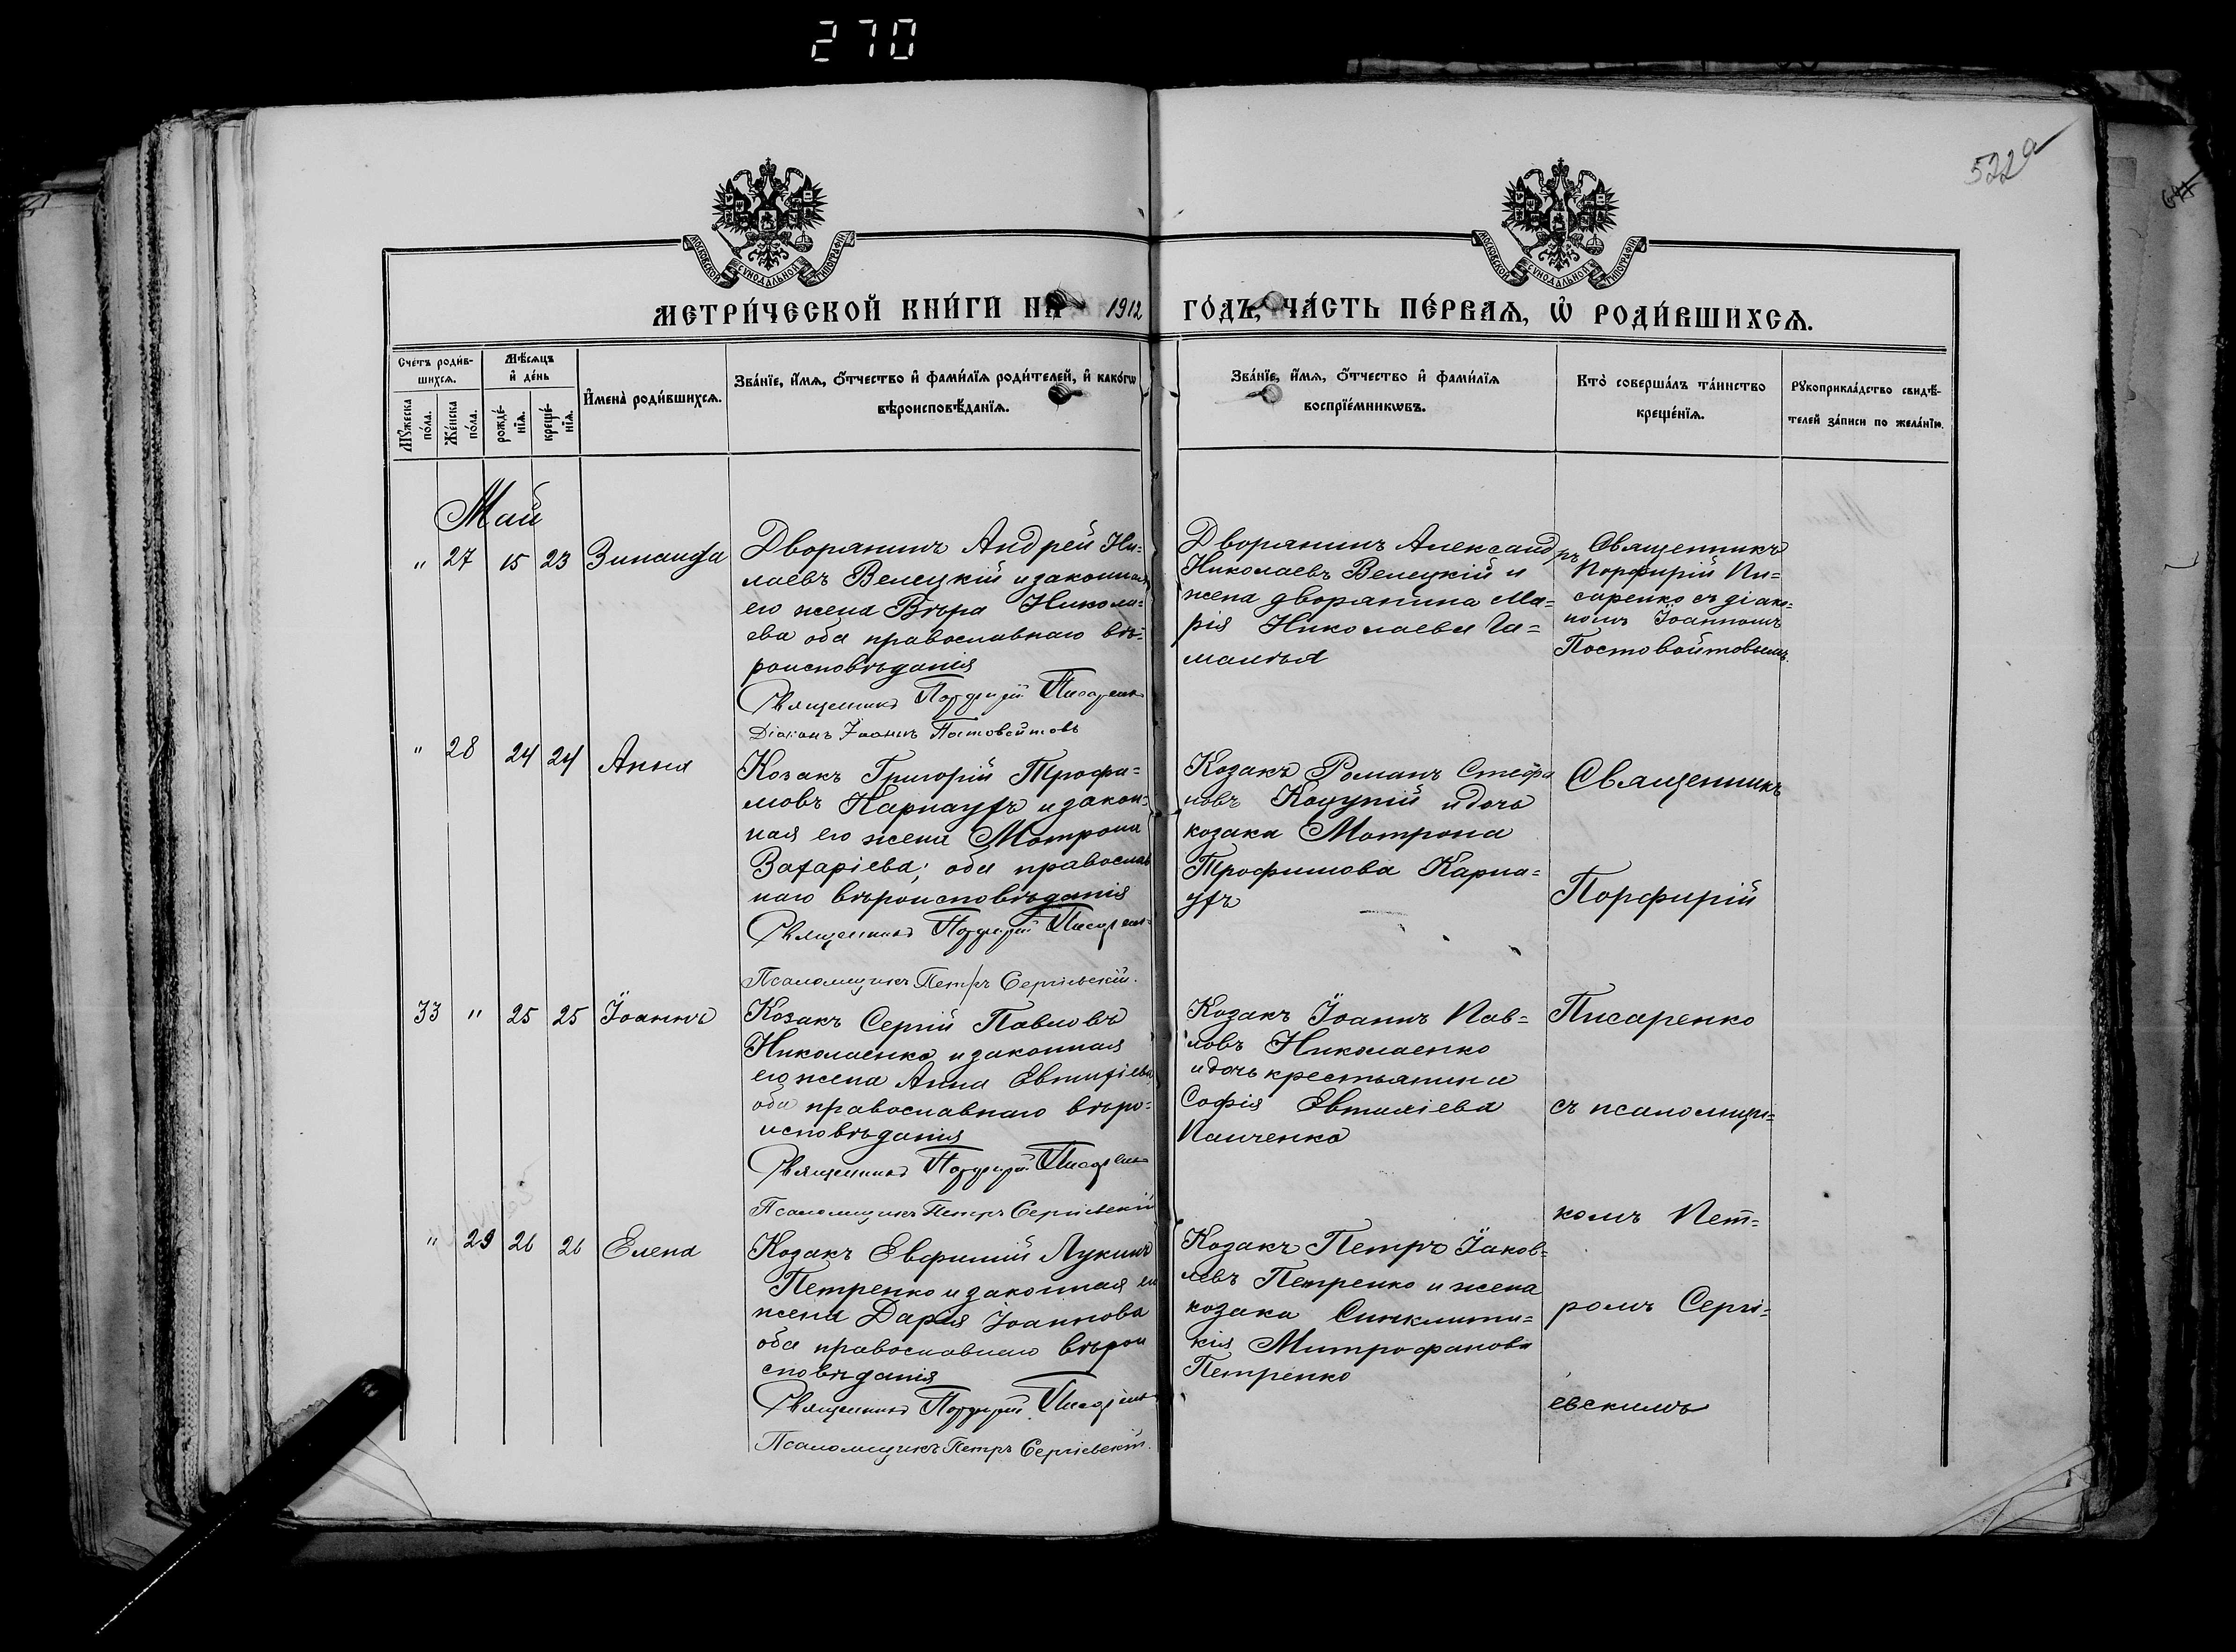 270
522а
МОСКОВСКОЙ СУНОДАЛЬНОЙ ТИПОГРАФІИ
МОСКОВСКОЙ СУНОДАЛЬНОЙ ТИПОГРАФІИ
МЕТРИ́ЧЕСКОЙ КНИ́ГИ НА 1912 ГО́ДЪ, ЧА́СТЬ ПЕ́РВАѦ, Ѡ҆ РОДИ́ВШИХСѦ.
Сче́тъ роди́в-
шихсѧ.
Мꙋ́жеска по́ла.
Же́нска по́ла.
Мѣ́сѧцъ
и҆ де́нь
рожде́-
нїѧ.
креще́-
нїѧ.
И҆мена̀ роди́вшихсѧ.
Зва́нїе, и҆́мѧ, ѻ҆́тчество и҆ фами́лїѧ роди́телей, и҆ како́гѡ
вѣроисповѣ́данїѧ.
Зва́нїе, и҆́мѧ, ѻ҆́тчество и҆ фами́лїѧ
воспрїе́мникѡвъ.
Кто̀ соверша́лъ та́инство
креще́нїѧ.
Рꙋкоприкла́дство свидѣ́-
телей за́писи по жела́нїю.
Май
" 27 15 23 Зинаида
Дворянинъ Андрей Ни-
лаевъ Велецкій и законная
его жена Вѣра Никола-
ева оба православнаго вѣ-
роисповѣданія
Священникъ Порфирій Писаренко
Діаконъ Іоаннъ Постовойтовъ
Дворянинъ Александръ
Николаевъ Велецкій и
жена дворянина Ма-
рія Николаева Га-
малѣя
Священникъ
Порфирій Пи-
саренко съ діако-
номъ Іоанномъ
Постовойтовымъ
" 28 24 24 Анна
Козакъ Григорій Трофи-
мовъ Карнаухъ и закон-
ная его жена Мотрона
Захаріева; оба православ
наго вѣроисповѣданія
Священникъ Порфирій Писаренко
Псаломщикъ Петръ Сергіевскій.
Козакъ Романъ Стефа
новъ Коцупій и дочь
козака Мотрона
Трофимова Карна-
ухъ
Священникъ
Порфирій
33 " 25 25 Іоаннъ
Козакъ Сергій Павловъ
Николаенко и законная
его жена Анна Евтихіева
оба православнаго вѣро-
исповѣданія
Священникъ Порфирій Писаренко
Псаломщикъ Петръ Сергіевскій
Козакъ Іоаннъ Пав-
ловъ Николаенко
и дочь крестьянина
Софія Евтихіева
Панченко
Писаренко
съ псаломщи-
комъ Пет-
" 29 26 26 Елена
Козакъ Евфимій Лукинъ
Петренко и законная его
жена Дарья Іоаннова
оба православнаго вѣрои
сповѣданія
Священникъ Порфирій Писаренко
Псаломщикъ Петръ Сергіевскій.
Козакъ Петръ Іаков-
левъ Петренко и жена
козака Синклити-
кія Митрофанова
Петренко
ромъ Сергі-
евскимъ